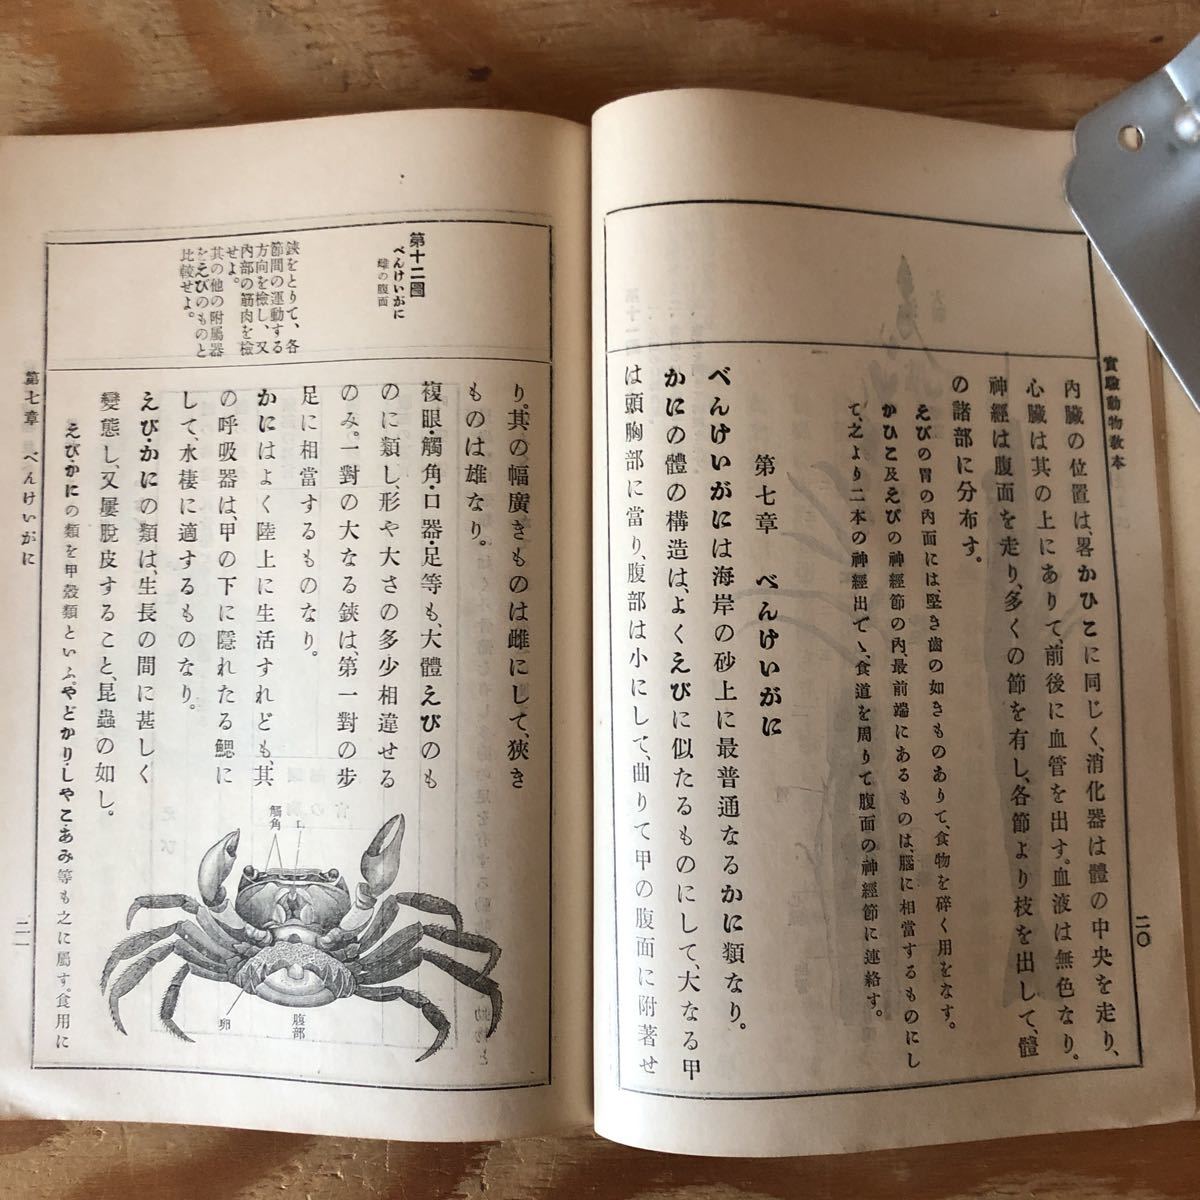 實驗動物敎本
二〇
內臟の位置は、畧かひこに同じく、消化器は體の中央を走り、
心臟は其の上にありて、前後に血管を出す。血液は無色なり。
神經は腹面を走り、多くの節を有し、各節より枝を出して、體
の諸部に分布す。
えびの胃の內面には、堅き齒の如きものありて、食物を碎く用をなす。
かひこ及えびの神經節の內、最前端にあるものは、腦に相當するものにし
て、之より二本の神經出で、食道を周りて腹面の神經節に連絡す。
第七章 べんけいがに
べんけいがには海岸の砂上に最普通なるかに類なり。
かにの體の構造は、よくえびに似たるものにして、大なる甲
は頭胸部に當り、腹部は小にして、曲りて甲の腹面に附著せ
り。其の幅廣きものは雌にして、狹き
ものは雄なり。
複眼・觸角・口器・足等も、大體えびのも
のに類し、形や大さの多少相違せる
のみ。一對の大なる鋏は、第一對の步
足に相當するものなり。
かにはよく陸上に生活すれども、其
の呼吸器は、甲の下に隱れたる鰓に
して、水棲に適するものなり。
えび・かにの類は、生長の間に甚しく
變態し、又屢脫皮すること、昆蟲の如し。
えび・かにの類を甲殼類といふ。やどかり・しやこ・あみ等も之に屬す。食用に
第十二圖
べんけいがに
雌の腹面
鋏をとりて、各
節間の運動する
方向を檢し、又
內部の筋肉を檢
せよ。
其の他の附屬器
をえびのものと
比較せよ。
觸角
口
卵
腹部
第七章 べんけいがに
二一